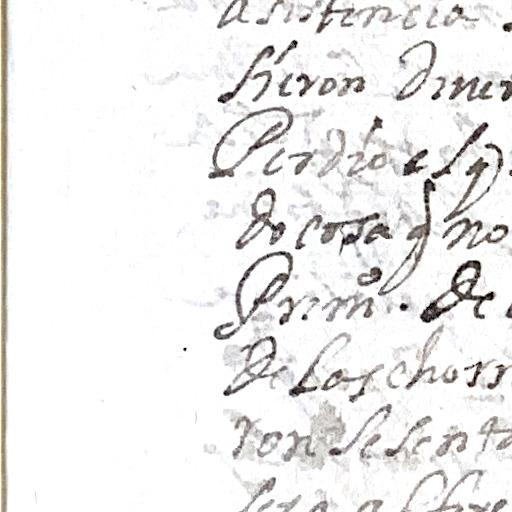 asistencia
sieron Diner
Perdio el q
do cosa q no
Primo. De
De los chorr
ron sesent